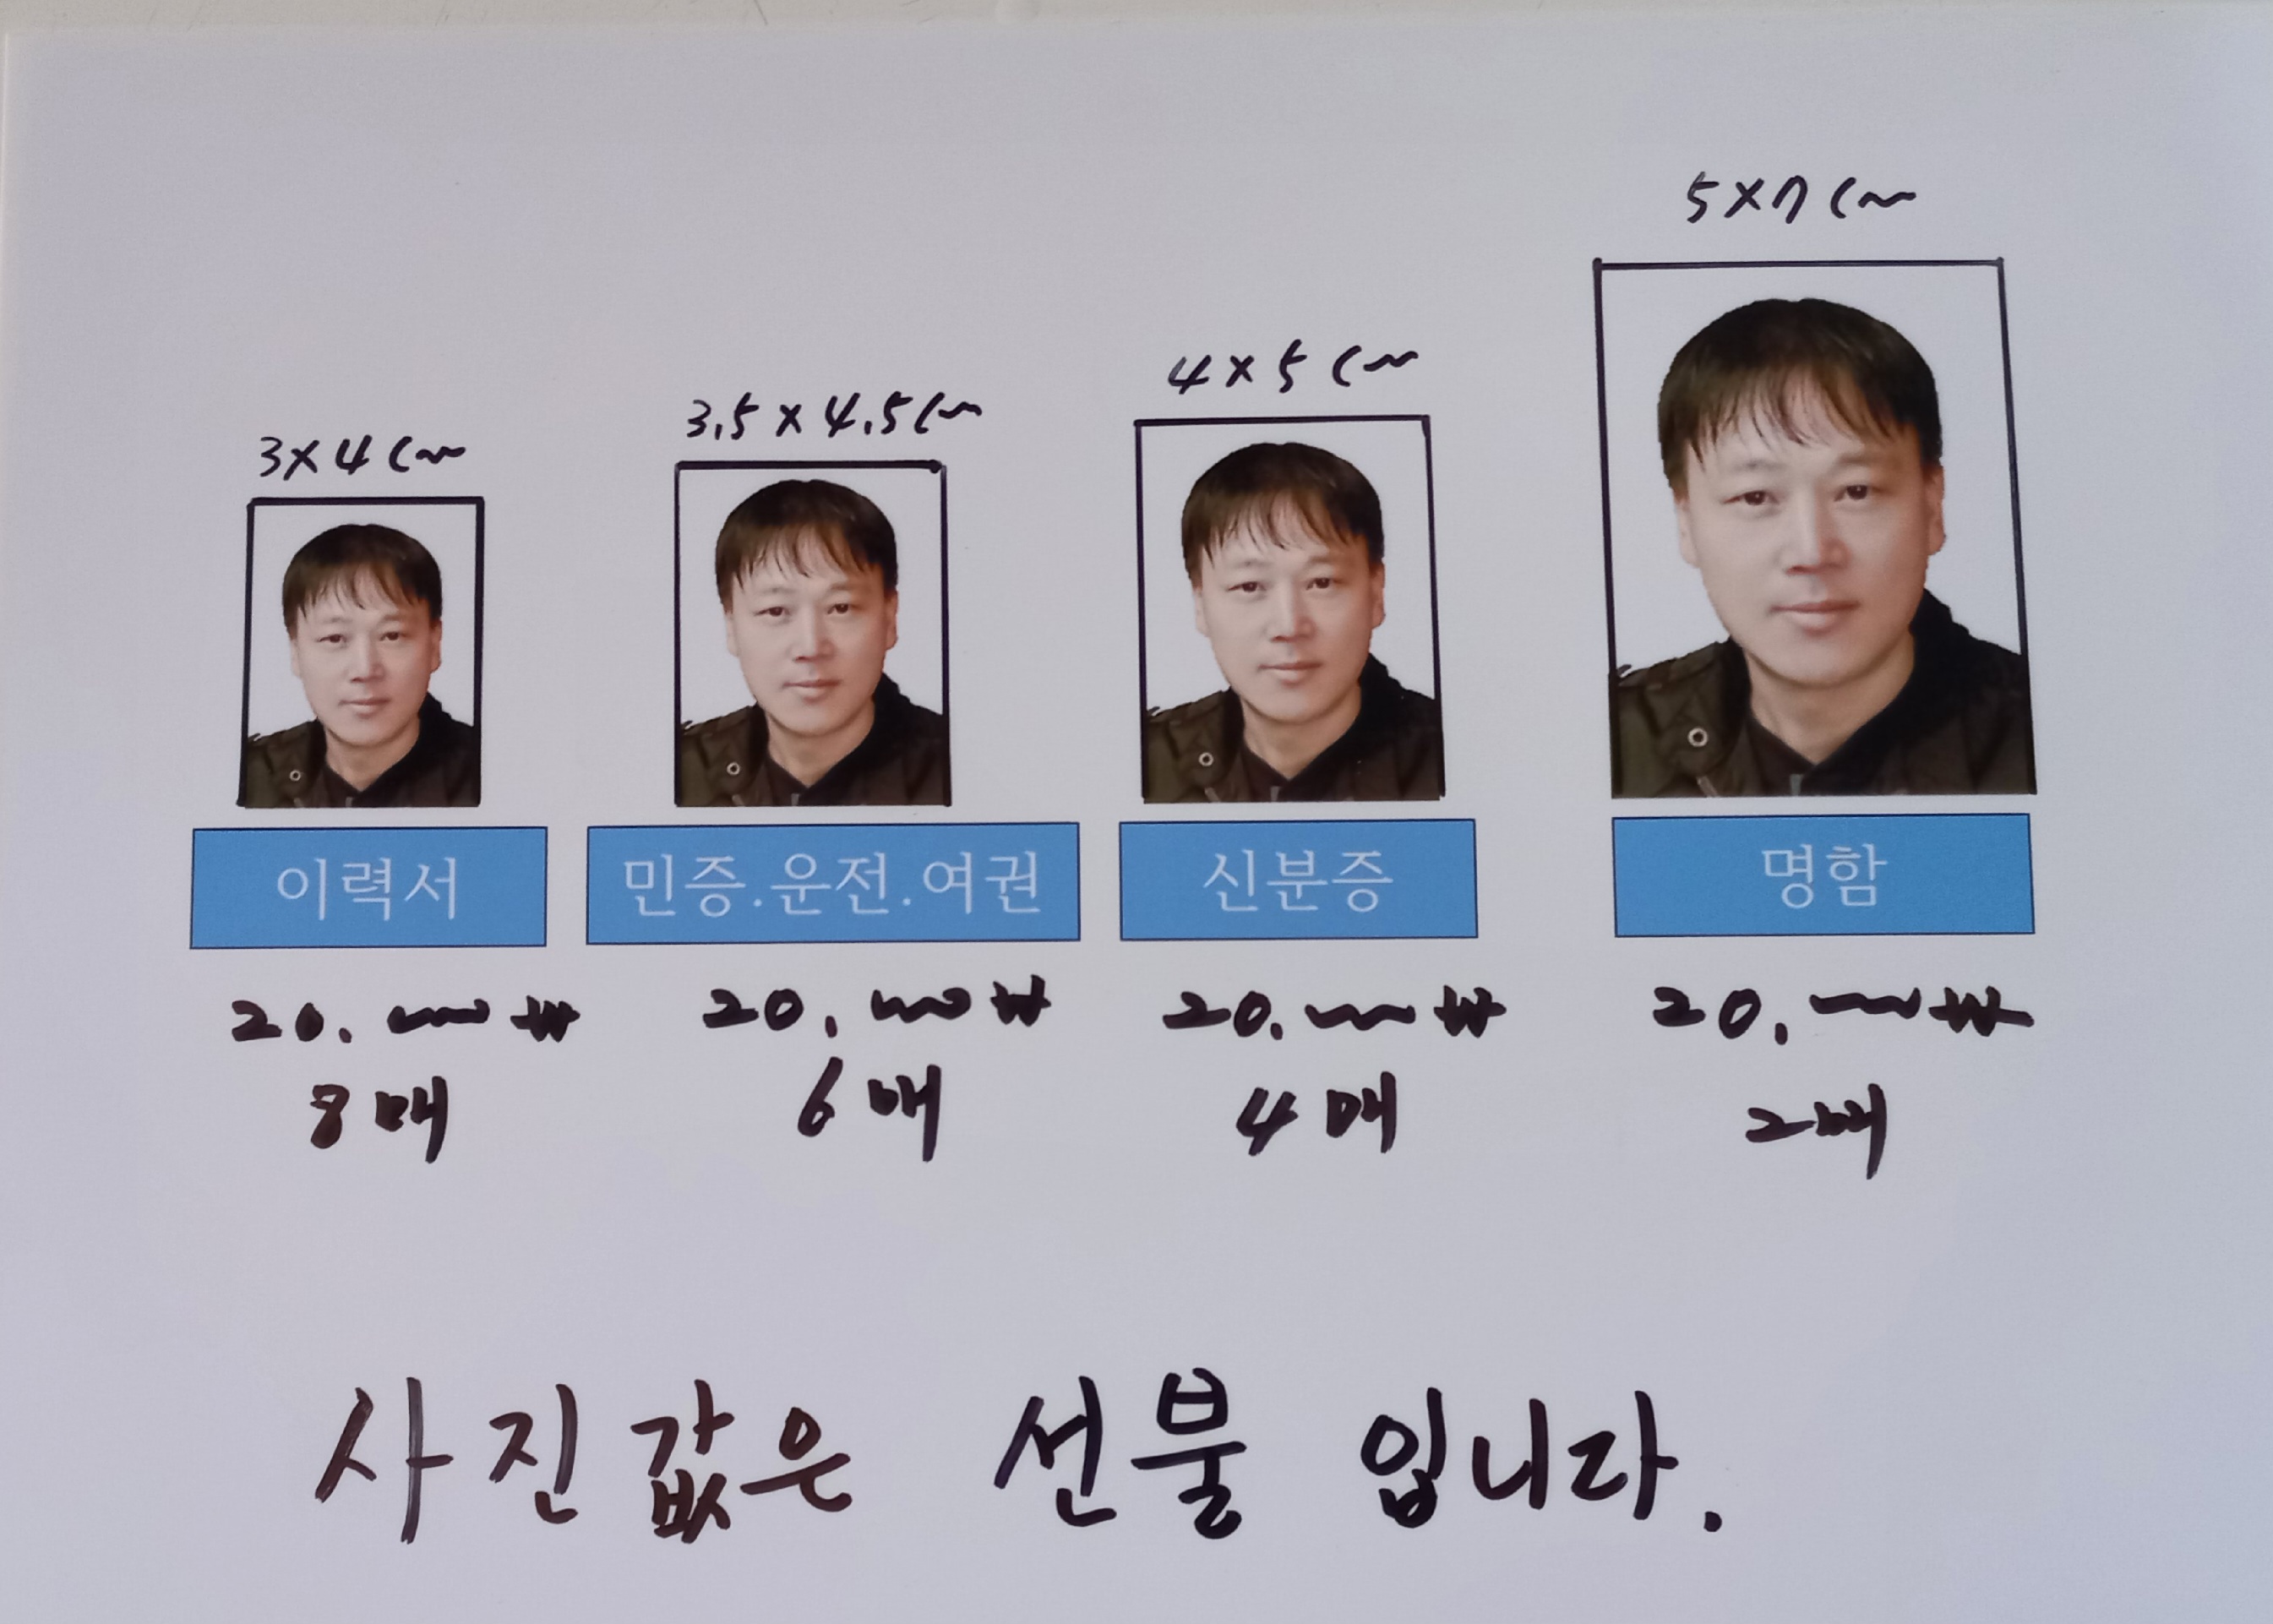 5x7cm
4x5cm
3.5x4.5cm
3x4cm
이력서 민증.운전.여권 신분증 명함
20.000₩ 20.000₩ 20.000₩ 20.000₩
8매 6매 4매 2매
사진값은 선불 입니다.